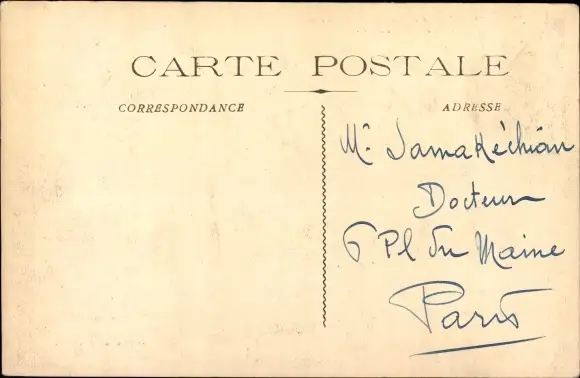 CARTE POSTALE
CORRESPONDANCE
ADRESSE
Mr Samakéchian
Docteur
6 Pl du Maine
Paris